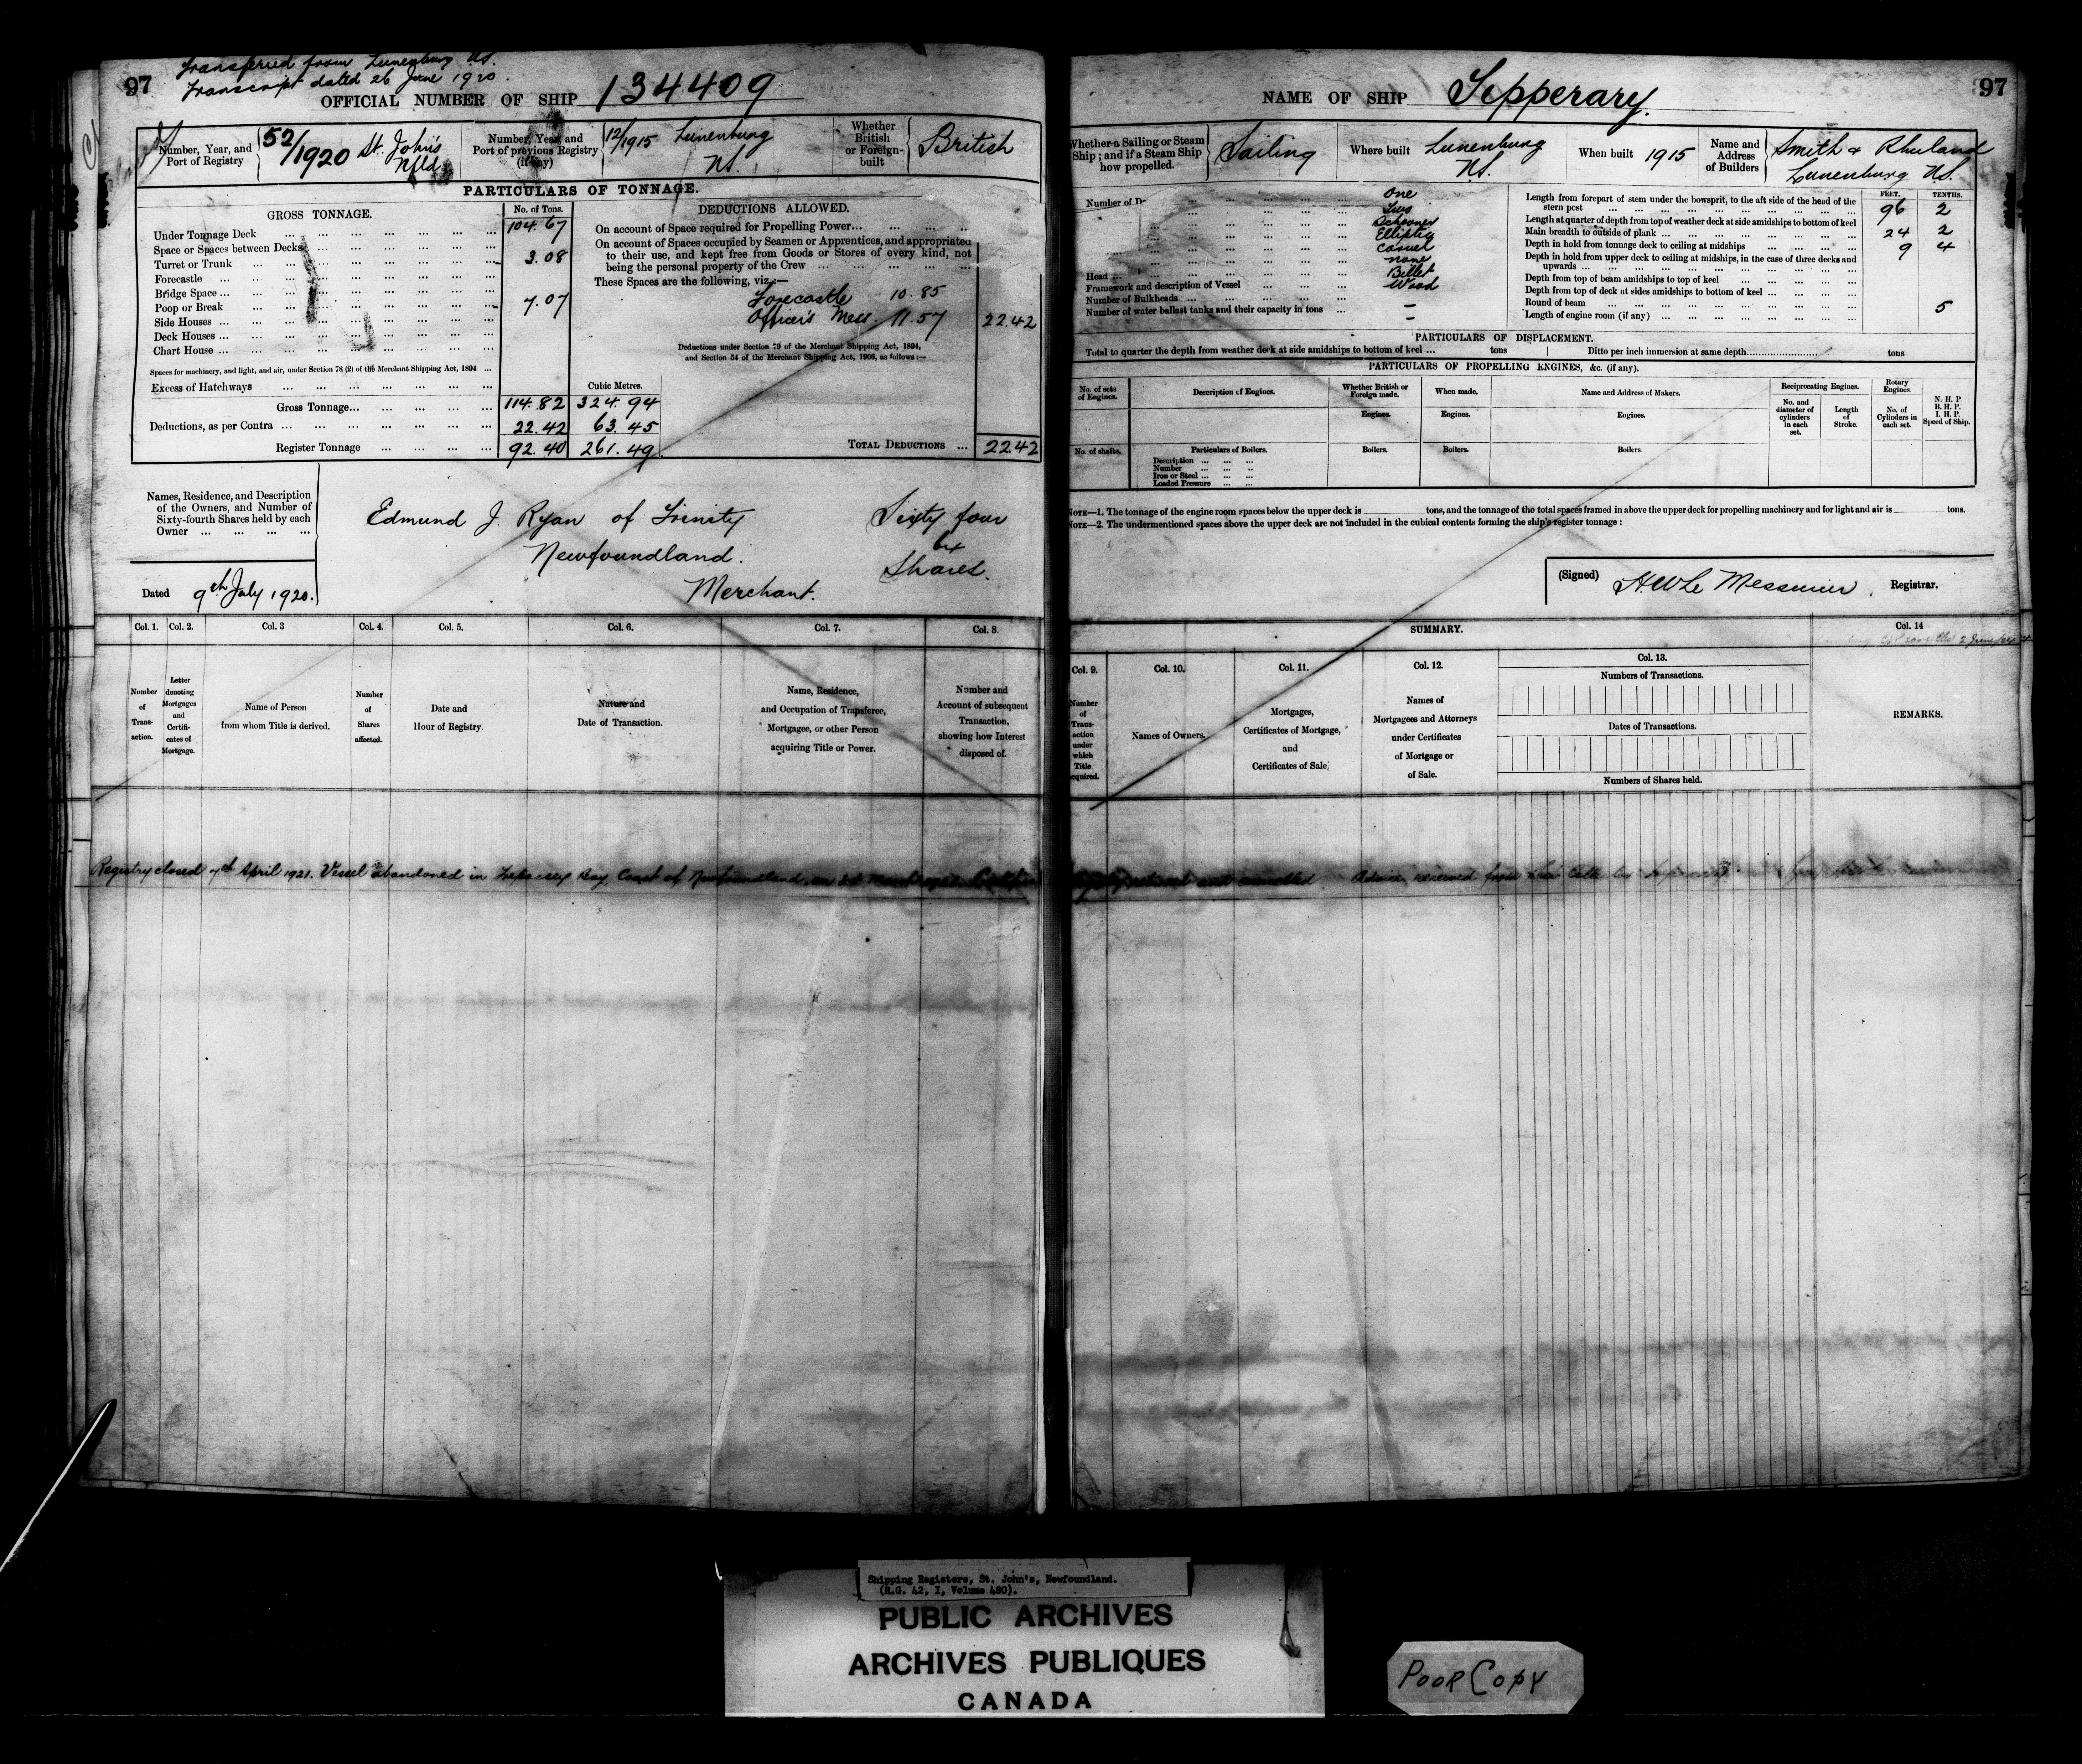 97
Transferred from Lunenburg NS.
Transcript dated 26 June 1920.
OFFICIAL NUMBER OF SHIP 134409
Number, Year, and Port of Registry
52/1920 St. John's Nfld
Number, Year, and Port of previous Registry (if any)
12/1915 Lunenburg NS.
Whether British or Foreign-built
British
PARTICULARS OF TONNAGE.
GROSS TONNAGE.
No. of Tons.
Under Tonnage Deck ... 104.67
Space or Spaces between Decks
Turret or Trunk ... 3.08
Forecastle ...
Bridge Space ...
Poop or Break ... 7.07
Side Houses ...
Deck Houses ...
Chart House ...
Spaces for machinery, and light, and air, under Section 78 (2) of the Merchant Shipping Act, 1894 ...
Excess of Hatchways ...
Cubic Metres.
Gross Tonnage... 114.82 324.94
Deductions, as per Contra ... 22.42 63.45
Register Tonnage ... 92.40 261.49
DEDUCTIONS ALLOWED.
On account of Space required for Propelling Power...
On account of Spaces occupied by Seamen or Apprentices, and appropriated
to their use, and kept free from Goods or Stores of every kind, not
being the personal property of the Crew ...
These Spaces are the following, viz.:—
Forecastle 10.85
Officer's Mess. 11.57 22.42
Deductions under Section 79 of the Merchant Shipping Act, 1894,
and Section 54 of the Merchant Shipping Act, 1906, as follows:—
TOTAL DEDUCTIONS ... 22.42
Names, Residence, and Description
of the Owners, and Number of
Sixty-fourth Shares held by each
Owner ...
Edmund J. Ryan of Trinity Sixty four
Newfoundland. 64
Merchant. Shares.
Dated 9th July 1920.
Col. 1. Col. 2. Col. 3 Col. 4. Col. 5. Col. 6. Col. 7. Col. 8.
Number of Transaction.
Letter denoting Mortgages and Certificates of Mortgage.
Name of Person from whom Title is derived.
Number of Shares affected.
Date and Hour of Registry.
Nature and Date of Transaction.
Name, Residence, and Occupation of Transferee, Mortgagee, or other Person acquiring Title or Power.
Number and Account of subsequent Transaction, showing how Interest disposed of.
Registry closed 7th April 1921. Vessel abandoned in Trepassey Bay, Coast of Newfoundland, on
97
NAME OF SHIP Tipperary.
Whether a Sailing or Steam Ship; and if a Steam Ship how propelled.
Sailing
Where built
Lunenburg NS.
When built 1915
Name and Address of Builders
Smith & Rhuland
Lunenburg NS.
Number of
One
Two
Schooner
Elliptic
Carvel
none
Head ... Billet
Framework and description of Vessel Wood
Number of Bulkheads ... –
Number of water ballast tanks and their capacity in tons ... –
FEET. TENTHS.
Length from forepart of stem under the bowsprit, to the aft side of the head of the
stern post ... 96 2
Length at quarter of depth from top of weather deck at side amidships to bottom of keel
Main breadth to outside of plank ... 24 2
Depth in hold from tonnage deck to ceiling at midships ... 9 4
Depth in hold from upper deck to ceiling at midships, in the case of three decks and
upwards ...
Depth from top of beam amidships to top of keel ...
Depth from top of deck at sides amidships to bottom of keel ...
Round of beam ... 5
Length of engine room (if any) ...
PARTICULARS OF DISPLACEMENT.
Total to quarter the depth from weather deck at side amidships to bottom of keel ... tons
Ditto per inch immersion at same depth... tons
PARTICULARS OF PROPELLING ENGINES, &c. (if any).
No. of sets of Engines.
Description of Engines.
Whether British or Foreign made.
When made.
Name and Address of Makers.
Reciprocating Engines.
Rotary Engines.
N. H. P. B. H. P. I. H. P. Speed of Ship.
No. and diameter of cylinders in each set.
Length of Stroke.
No. of Cylinders in each set.
Engines. Engines. Engines.
No. of shafts.
Particulars of Boilers.
Boilers. Boilers. Boilers
Description ...
Number ...
Iron or Steel ...
Loaded Pressure ...
NOTE—1. The tonnage of the engine room spaces below the upper deck is ______ tons, and the tonnage of the total spaces framed in above the upper deck for propelling machinery and for light and air is ______ tons.
NOTE—2. The undermentioned spaces above the upper deck are not included in the cubical contents forming the ship's register tonnage:
(Signed) H W Le Messurier, Registrar.
SUMMARY.
Col. 14
Col. 9. Col. 10. Col. 11. Col. 12. Col. 13.
Number of Transaction under which Title acquired.
Names of Owners.
Mortgages, Certificates of Mortgage, and Certificates of Sale,
Names of Mortgagees and Attorneys under Certificates of Mortgage or of Sale.
Numbers of Transactions.
Dates of Transactions.
Numbers of Shares held.
REMARKS.
and cancelled. Advice received from
Shipping Registers, St. John's, Newfoundland.
(R.G. 42, I, Volume 480).
PUBLIC ARCHIVES
ARCHIVES PUBLIQUES
CANADA
POOR COPY